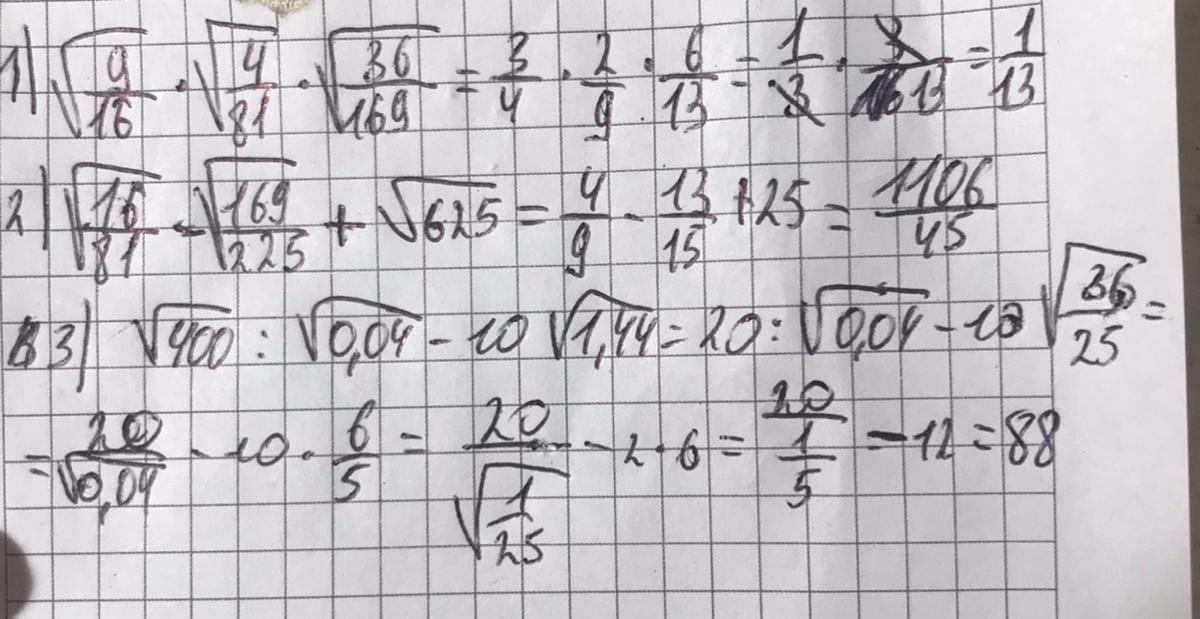 1) √(9/16) · √(4/81) · √(36/169) = 3/4 · 2/9 · 6/13 = 1/3 · 3/13 = 1/13
2) √(16/81) - √(169/225) + √625 = 4/9 - 13/15 + 25 = 1106/45
3) √400 : √0,04 - 10 √1,44 = 20 : √0,04 - 10 √(36/25) =
= 20/√0,04 - 10 · 6/5 = 20/√(1/25) - 2 · 6 = 20/(1/5) - 12 = 88